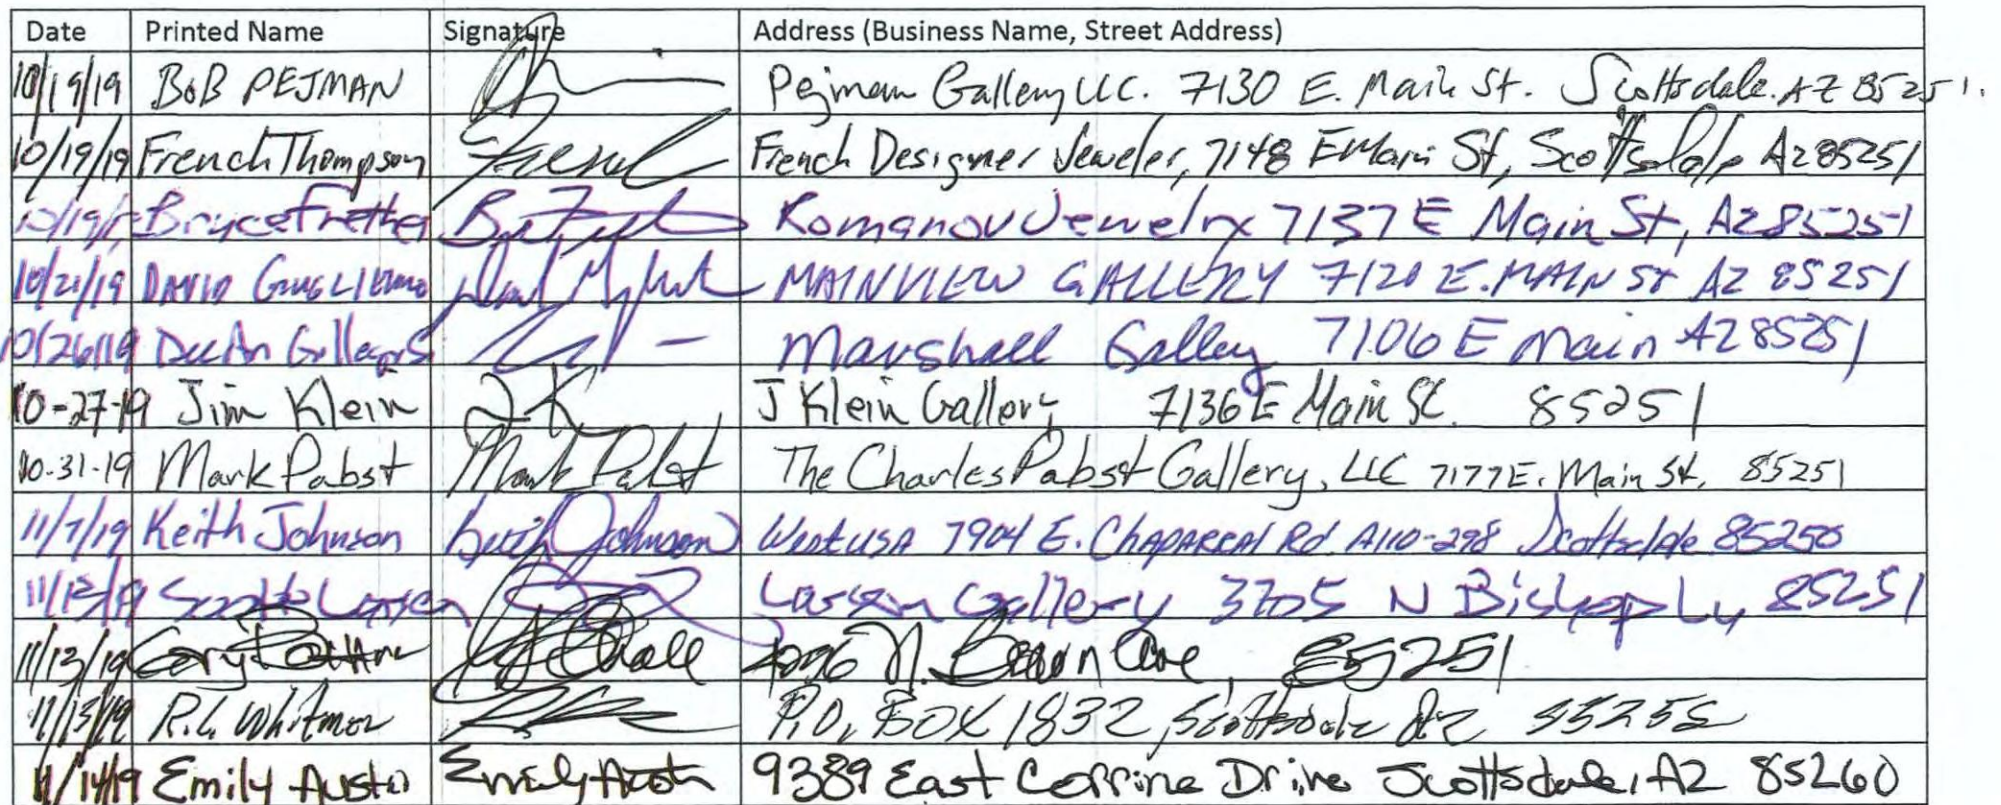 Date Printed Name Signature Address (Business Name, Street Address)
10/19/19 BOB PEJMAN Pejman Gallery LLC. 7130 E. Main St. Scottsdale. AZ 85251.
10/19/19 French Thompson French French Designer Jeweler, 7148 E Main St, Scottsdale AZ 85251
10/19/19 Bryce Romanov Jewelry 7137 E Main St, AZ 85251
10/21/19 DAVID MAINVIEW GALLERY 7120 E. MAIN St AZ 85251
10/26/19 Marshall Galley 7106 E Main AZ 85251
10-27-19 Jim Klein JK J Klein Gallery 7136 E Main St. 85251
10-31-19 Mark Pabst Mark Pabst The Charles Pabst Gallery, LLC 7177 E. Main St. 85251
11/7/19 Keith Johnson Keith Johnson West USA 7904 E. CHAPARRAL Rd A110-298 Scottsdale 85250
Larsen Gallery 3705 N Bishop Ln 85251
11/13/19 Gary N. Brown Ave, 85251
11/13/19 R.L. Whitmer P.O. BOX 1832, Scottsdale AZ 85252
11/14/19 Emily Austin Emily Austin 9389 East Corrine Drive Scottsdale, AZ 85260